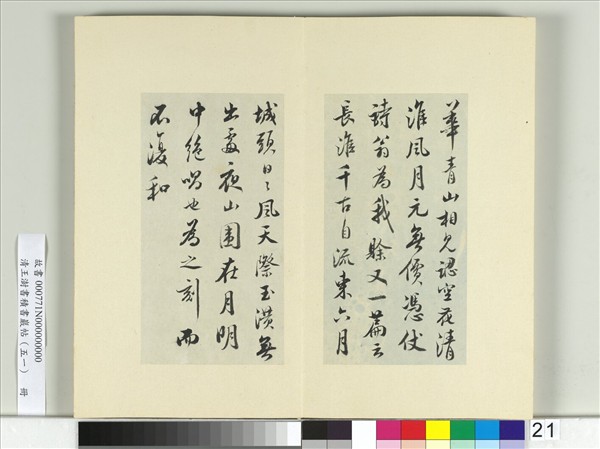 華青山相見認空花清
淮風月元無價憑仗
詩翁為我賒又一篇云
長淮千古自流東六月
城頭日々風天際玉潢無
出處夜山圍在月明
中絕唱也為之刻而
不復和
故書 000771N000000000
清王澍書積書巖帖(五一) 冊
21